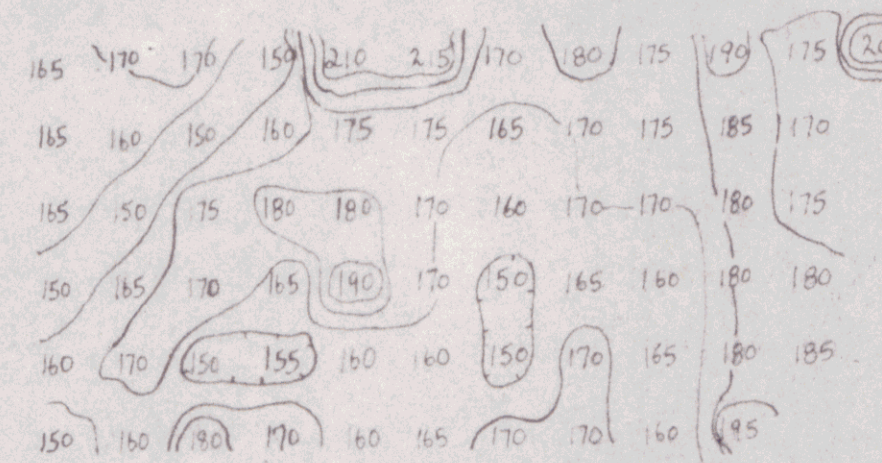 165 170 170 150 210 215 170 180 175 190 175 20
165 160 150 160 175 175 165 170 175 185 170
165 150 175 180 180 170 160 170 170 180 175
150 165 170 165 190 170 150 165 160 180 180
160 170 150 155 160 160 150 170 165 180 185
150 160 180 170 160 165 170 170 160 195